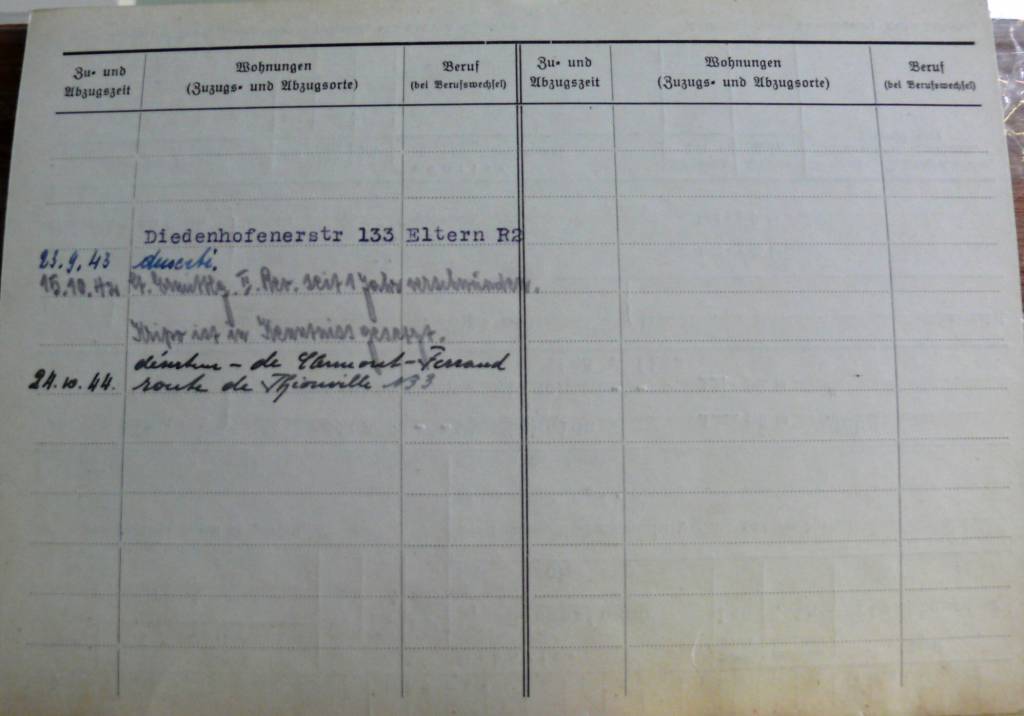 Zu- und
Abzugszeit
Wohnungen
(Zuzugs- und Abzugsorte)
Beruf
(bei Berufswechsel)
Zu- und
Abzugszeit
Wohnungen
(Zuzugs- und Abzugsorte)
Beruf
(bei Berufswechsel)
Diedenhofenerstr 133 Eltern R2
23.9.43
15.10. II. Rev. seit 1 Jahr verschwunden.
Kripo ist in Kenntniss gesetzt.
de Clermont-Ferrand
24.10.44. route de Thionville 133